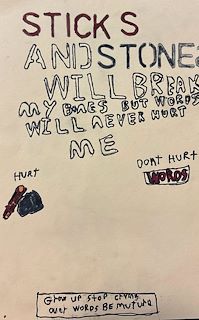 STICKS
AND STONES
WILL BREAK
MY BONES BUT WORDS
WILL NEVER HURT
ME
HURT
DONT HURT
WORDS
Grow up stop crying
over WORDS BE muture